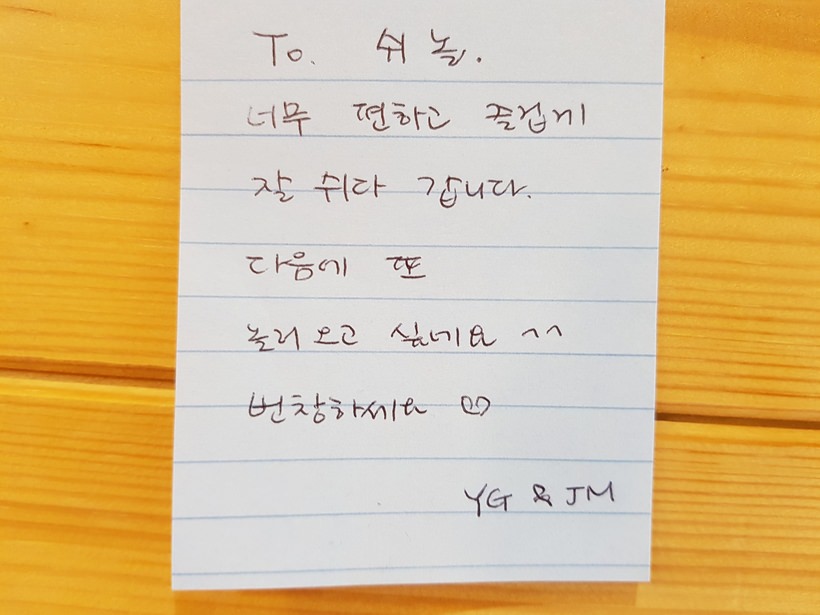 To. 쉬놀.
너무 편하고 즐겁게
잘 쉬다 갑니다.
다음에 또
놀러오고 싶네요 ^^
번창하세요 ♡
YG & JM